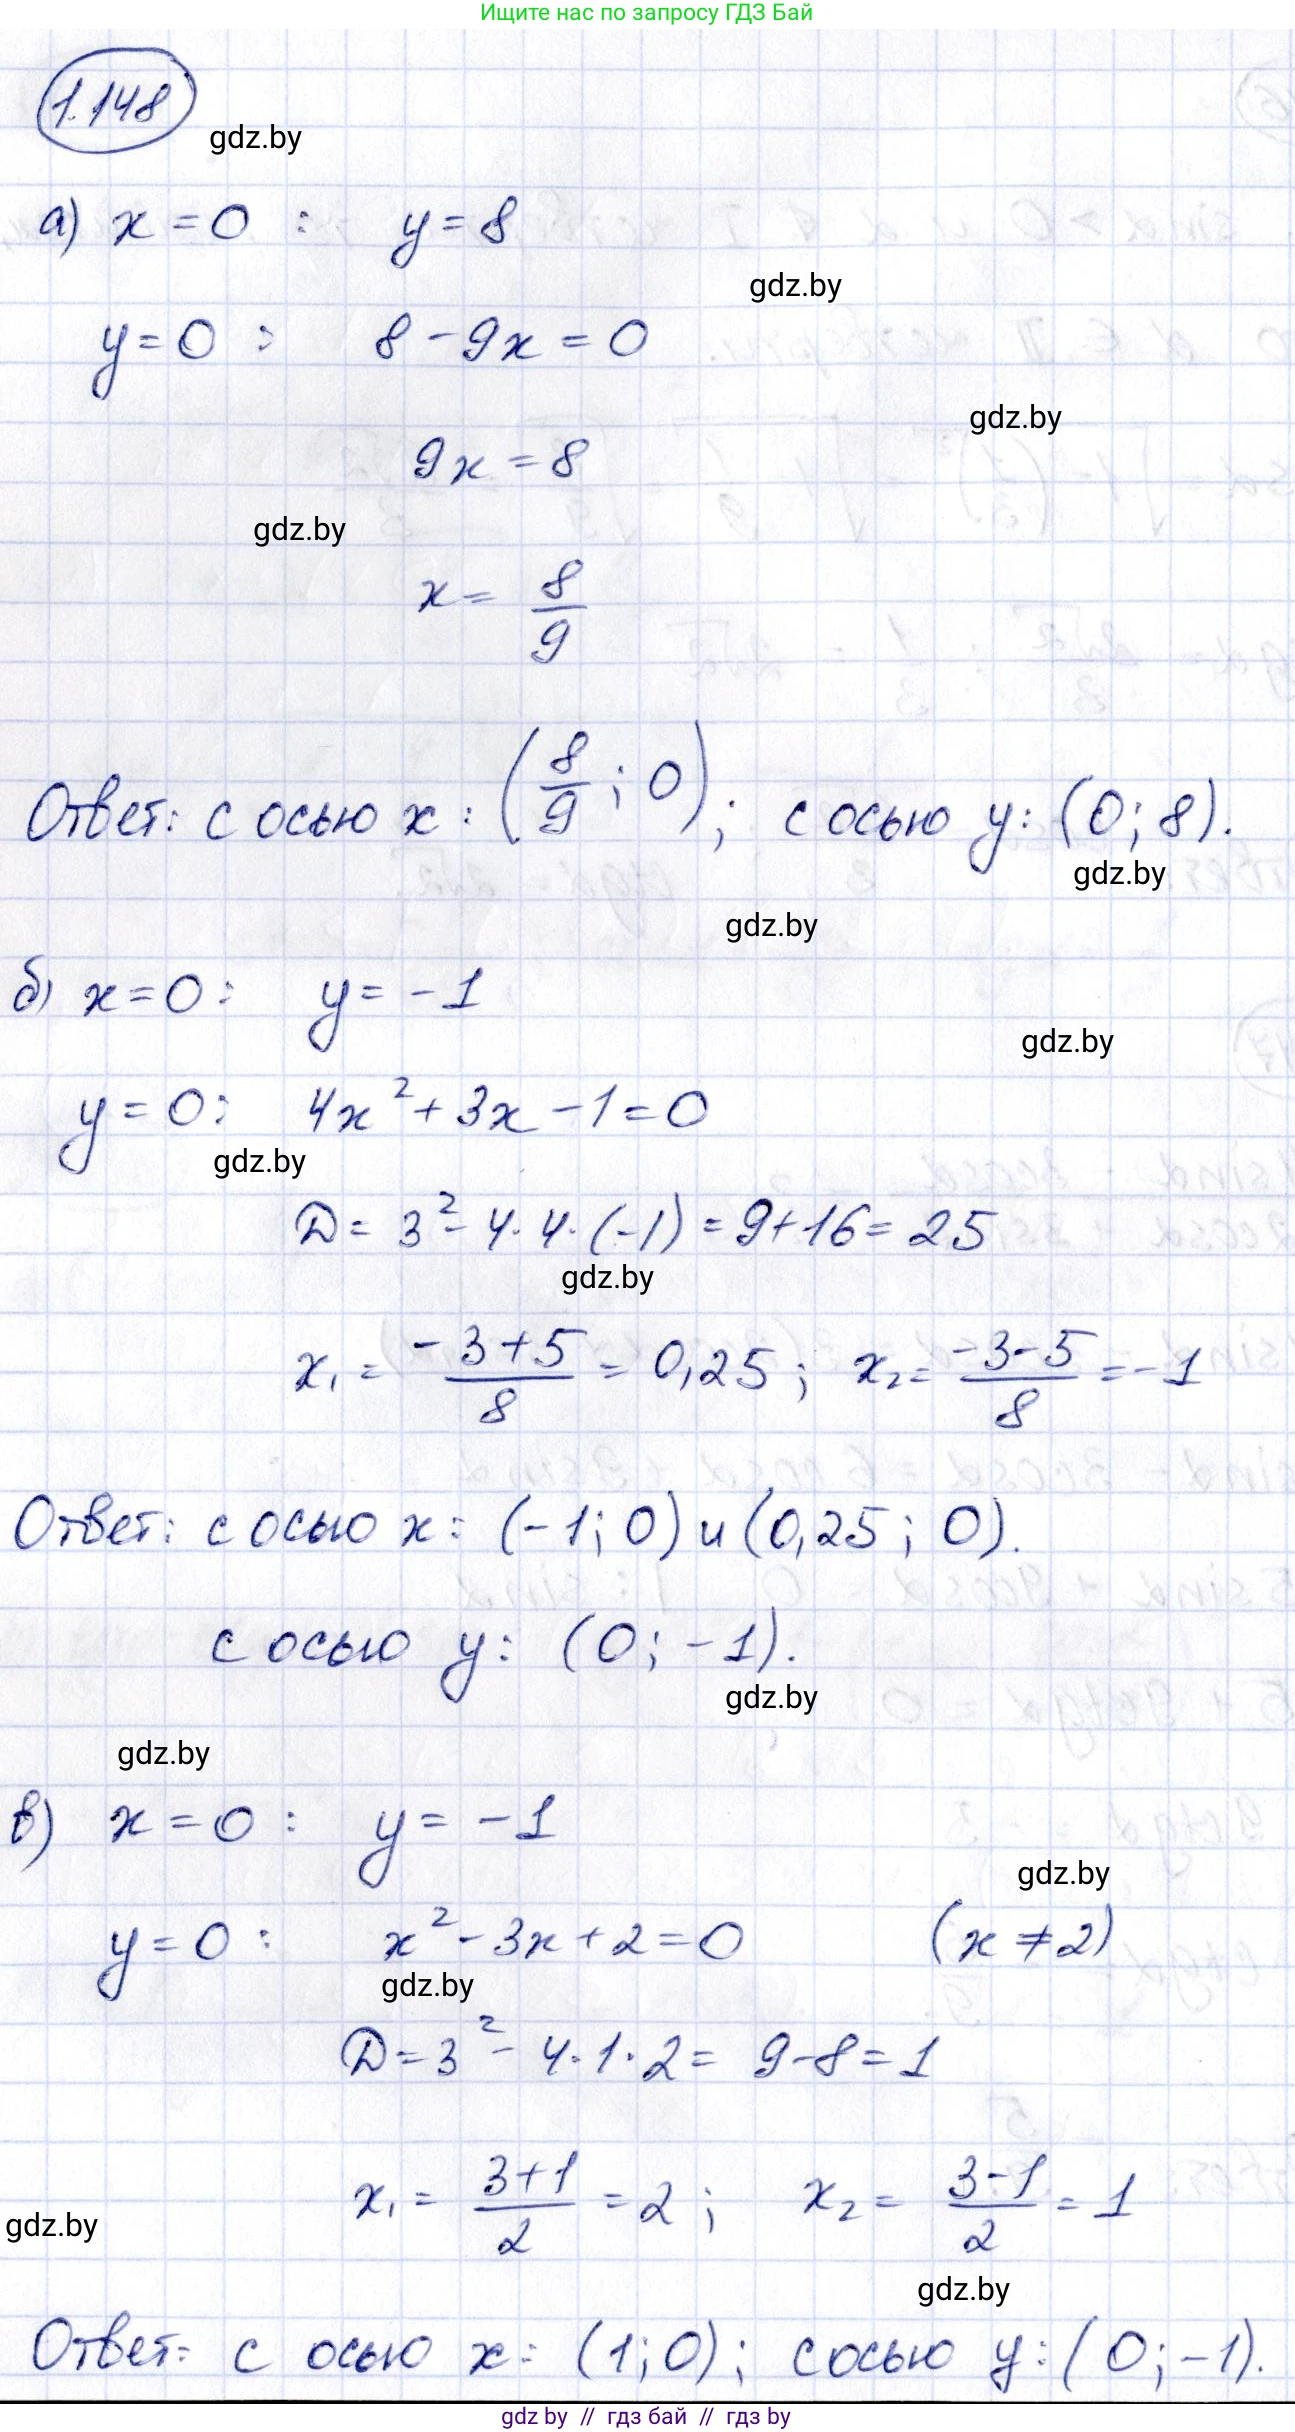 Ищите нас по запросу ГДЗ Бай
1.148
gdz.by
а) x = 0 : y = 8
gdz.by
y = 0 : 8 - 9x = 0
gdz.by
9x = 8
gdz.by
x = 8/9
Ответ: с осью x : (8/9 ; 0); с осью y: (0; 8).
gdz.by
gdz.by
б) x = 0 : y = -1
gdz.by
y = 0 : 4x² + 3x - 1 = 0
gdz.by
D = 3² - 4·4·(-1) = 9 + 16 = 25
gdz.by
x₁ = (-3+5)/8 = 0,25 ; x₂ = (-3-5)/8 = -1
Ответ: с осью x : (-1; 0) и (0,25 ; 0).
с осью y : (0; -1).
gdz.by
gdz.by
в) x = 0 : y = -1
gdz.by
y = 0 : x² - 3x + 2 = 0 (x ≠ 2)
gdz.by
D = 3² - 4·1·2 = 9 - 8 = 1
x₁ = (3+1)/2 = 2 ; x₂ = (3-1)/2 = 1
gdz.by
gdz.by
Ответ: с осью x : (1; 0) ; с осью y : (0; -1).
gdz by // гдз бай // гдз by